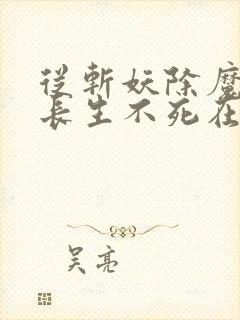 從斬妖除魔
長生不死在
吴亮